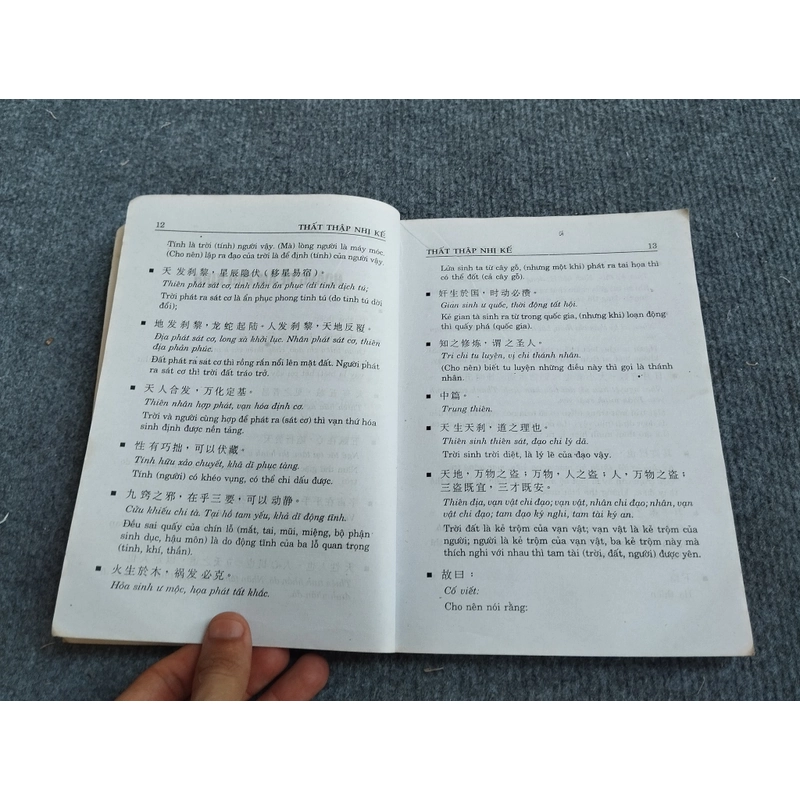 12
THẤT THẬP NHỊ KẾ
Tính là trời (tính) người vậy. (Mà) lòng người là máy móc.
(Cho nên) lập ra đạo của trời là để định (tính) của người vậy.
■ 天 发 刹 黎，星辰隐伏 (移星易宿)。
Thiên phát sát cơ, tinh thần ẩn phục (di tinh dịch tú;
Trời phát ra sát cơ là ẩn phục phong tinh tú (do tinh tú dời
đổi);
■ 地 发 刹 黎，龙蛇起陆。人发刹黎，天地反複。
Địa phát sát cơ, long xà khởi lục. Nhân phát sát cơ, thiên
địa phản phúc.
Đất phát ra sát cơ thì rồng rắn nổi lên mặt đất. Người phát
ra sát cơ thì trời đất tráo trở.
■ 天 人 合 发，万化定基。
Thiên nhân hợp phát, vạn hóa định cơ.
Trời và người cùng hợp để phát ra (sát cơ) thì vạn thứ hóa
sinh định được nền tảng.
■ 性 有 巧 拙，可 以 伏藏。
Tính hữu xảo chuyết, khả dĩ phục tàng.
Tính (người) có khéo vụng, có thể chi dấu được.
■ 九 窍 之 邪，在 乎 三 要，可 以 动静。
Cửu khiếu chi tà. Tại hồ tam yếu, khả dĩ động tĩnh.
Đều sai quấy của chín lỗ (mắt, tai, mũi, miệng, bộ phận
sinh dục, hậu môn) là do động tĩnh của ba lỗ quan trọng
(tinh, khí, thần).
■ 火 生 於 木，祸 发 必 克。
Hỏa sinh ư mộc, họa phát tất khắc.
THẤT THẬP NHỊ KẾ
13
Lửa sinh ta từ cây gỗ, (nhưng một khi) phát ra tai họa thì
có thể đốt (cả cây gỗ).
■ 奸 生 於 国，时 动 必 溃。
Gian sinh ư quốc, thời động tất hội.
Kẻ gian tà sinh ra từ trong quốc gia, (nhưng khi) loạn động
thì quấy phá (quốc gia).
■ 知 之 修 炼，谓 之 圣 人。
Tri chi tu luyện, vị chi thánh nhân.
(Cho nên) biết tu luyện những điều này thì gọi là thánh
nhân.
■ 中 篇。
Trung thiên.
■ 天 生 天 刹，道 之 理 也。
Thiên sinh thiên sát, đạo chi lý dã.
Trời sinh trời diệt, là lý lẽ của đạo vậy.
■ 天地，万物之盗；万物，人之盗；人，万物之盗；
三盗既宜，三才既安。
Thiên địa, vạn vật chi đạo; vạn vật, nhân chi đạo; nhân, vạn
vật chi đạo; tam đạo ký nghi, tam tài ký an.
Trời đất là kẻ trộm của vạn vật; vạn vật là kẻ trộm của
người; người là kẻ trộm của vạn vật, ba kẻ trộm này mà
thích nghi với nhau thì tam tài (trời, đất, người) được yên.
■ 故 曰：
Cố viết:
Cho nên nói rằng: